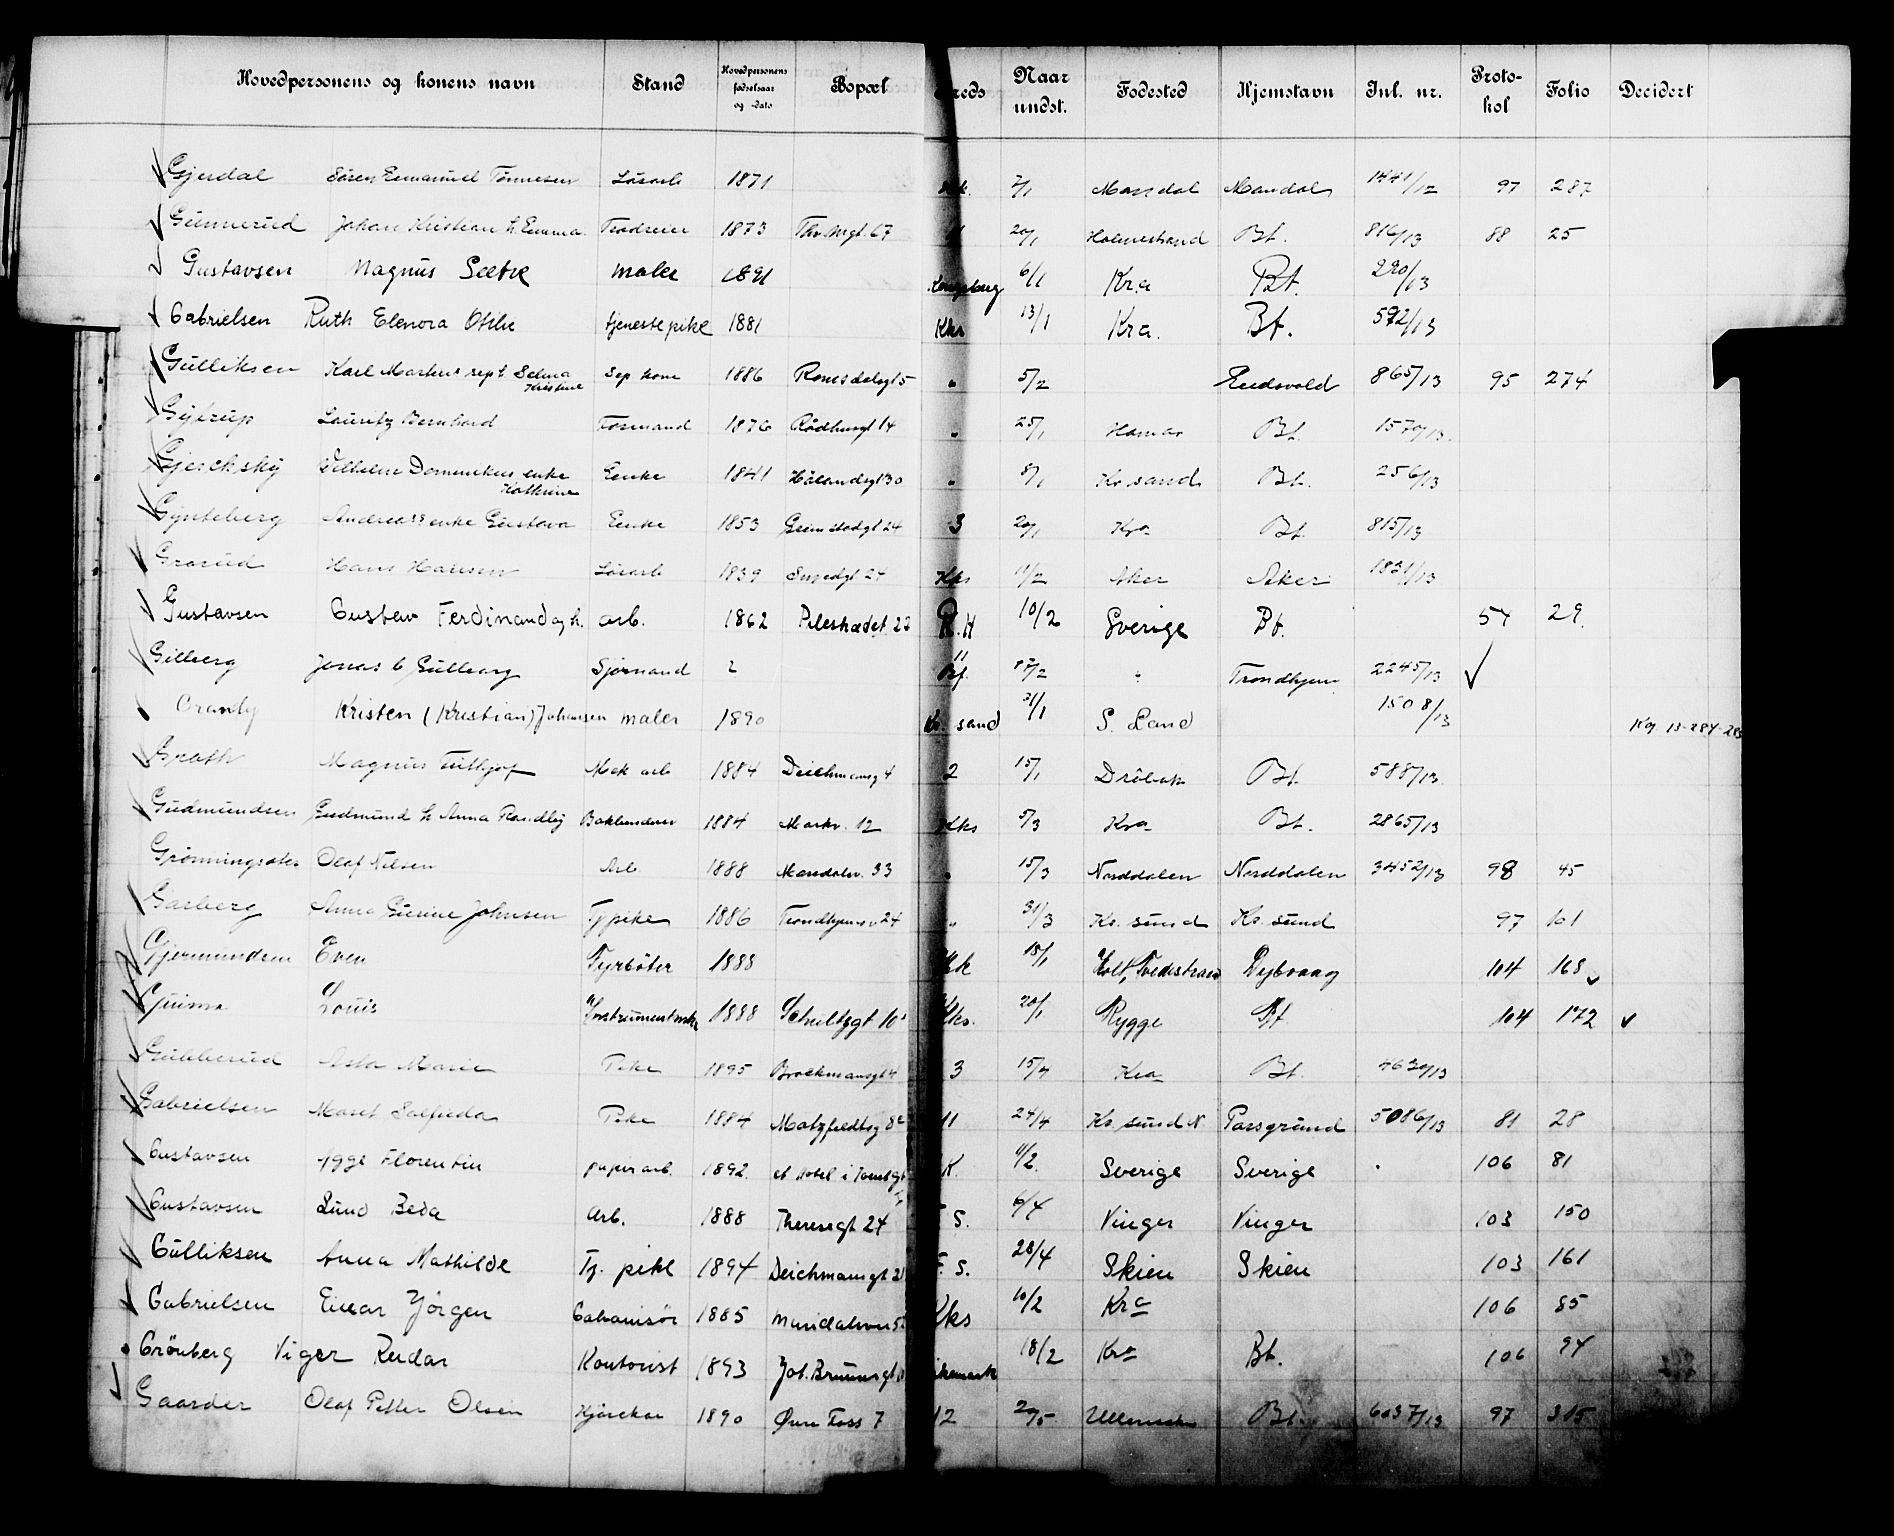 Hovedpersonens og konens navn Stand Hovedpersonens fødselsaar og -dato Bopæl Kreds Naar undst. Fødested Hjemstavn Inl. nr. Proto-kol Folio Decidert
Gjerdal Sören Emanuel Tönnesen Lösarb 1871 7/1 Mandal Mandal 1441/12 97 287
Gunnerud Johan Kristian h. Emma 1873 Thv. Mgt. 67 20/1 Holmestrand Bt. 816/13 88 25
Gustavsen Magnus maler 1891 Kongsberg 6/1 Kra Bt. 290/13
Gabrielsen Ruth Elenora tjenestepike 1881 Kks 13/1 Kra. Bt. 592/13
Gulliksen Karl Markus sept. Selma Kristine Sep kone 1886 Romsdalsgt 5 " 5/2 Eidsvold 865/13 95 274
Gytrup Lauritz Bernhard Formand 1876 Rådhusgt 14 " 25/1 Hamar Bt. 1570/13
Vilhelm Domenikus enke Kathrine Enke 1841 Hålandsgt 30 " 8/1 Kr sand Bt. 256/13
Gynteberg Andreas enke Gustava Enke 1853 Grimstadgt 24 3 20/1 Kra Bt. 815/13
Grorud Hans Hansen Lösarb 1839 Smedgt 24 Kks 11/2 Aker Aker 1831/13
Gustavsen Gustav Ferdinand og h. arb. 1862 Pilestrædet 22 R.H 10/2 Sverige Bt. 54 29.
Gilberg Jonas Sjömand 2 17/2 " Trondhjem 2245/13
Granly Kristen (Kristian) Johansen maler 1890 Kr. sand 31/1 S. Land 1508/13 Kg 13-284-285
Groth Magnus Frithjof Mek arb 1884 Deichmansg 4 2 15/1 Dröbak Bt. 588/13
Gudmundsen Gudmund h Anna Randby Bokbinderen 1884 Markv. 12 Kks 5/3 Kra Bt. 2865/13
Grönningsæter Olaf Nilsen Arb 1888 Mandalsv. 33 " 15/3 Norddalen Norddalen 3452/13 98 45
Garberg Anna Gurine Johnsen Tj pike 1886 Trondhjemsv 24 " 31/3 Kr. sund Kr. sund 97 101
Gjermundsen Even Fyrböter 1888 Kk 15/1 Holt, Tvedestrand Dybvaag 104 168
Louis Instrumentmak 1888 Schultzgt 10 Kks. 20/1 Rygge Bt 104 172
Gubberud Asta Marie Pike 1895 Brochmansgt 4 3 15/4 Kra Bt. 4630/13
Gabrielsen Marit Solfrida Pike 1884 Motzfeldtsg 8 11 24/4 Kr. sund N Porsgrund 5086/13 81 28
Gustavsen Florentin papirarb. 1892. K. 11/2. Sverige Sverige 106 81
Gustavsen Lund Beda Arb. 1888 Theresegt 24 F S. 6/4 Vinger Vinger 103 150
Gulliksen Anna Mathilde Tj. pike 1894 Deichmansgt 2 F. S. 28/4 Skien Skien 103 161
Gabrielsen Einar Jörgen Galvanisör 1885 Mandalsvei 5 Kks 10/2 Kra 106 85
Grönberg Viger Reidar Kontorist 1893 Joh. Bruunsgt 18/2 Kra Bt. 106 94
Gaarder Olaf Petter Olsen Kjörekar 1890 Øvre Foss 7 12 29/5 Ullensaker Bt. 6037/13 97 315